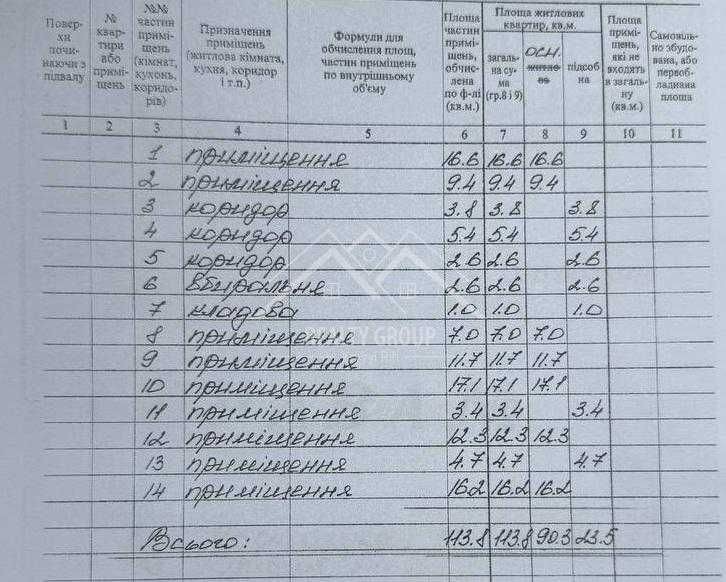 Поверхи починаючи з підвалу | № квартири або приміщень | №№ частин приміщень (кімнат, кухонь, коридорів) | Призначення приміщень (житлова кімната, кухня, коридор і т.п.) | Формули для обчислення площ, частин приміщень по внутрішньому об'єму | Площа частин приміщень, обчислена по ф-лі (кв.м.) | Площа житлових квартир, кв.м. | загальна сума (гр.8 і 9) | осн. житлова | підсобна | Площа приміщень, які не входять в загальну (кв.м.) | Самовільно збудована, або переобладнана площа
1 2 3 4 5 6 7 8 9 10 11
1 приміщення 16.6 16.6 16.6
2 приміщення 9.4 9.4 9.4
3 коридор 3.8 3.8 3.8
4 коридор 5.4 5.4 5.4
5 коридор 2.6 2.6 2.6
6 вбиральня 2.6 2.6 2.6
7 кладова 1.0 1.0 1.0
REALTY GROUP
8 приміщення 7.0 7.0 7.0
9 приміщення 11.7 11.7 11.7
10 приміщення 17.1 17.1 17.1
11 приміщення 3.4 3.4 3.4
12 приміщення 12.3 12.3 12.3
13 приміщення 4.7 4.7 4.7
14 приміщення 16.2 16.2 16.2
Всього: 113.8 113.8 90.3 23.5